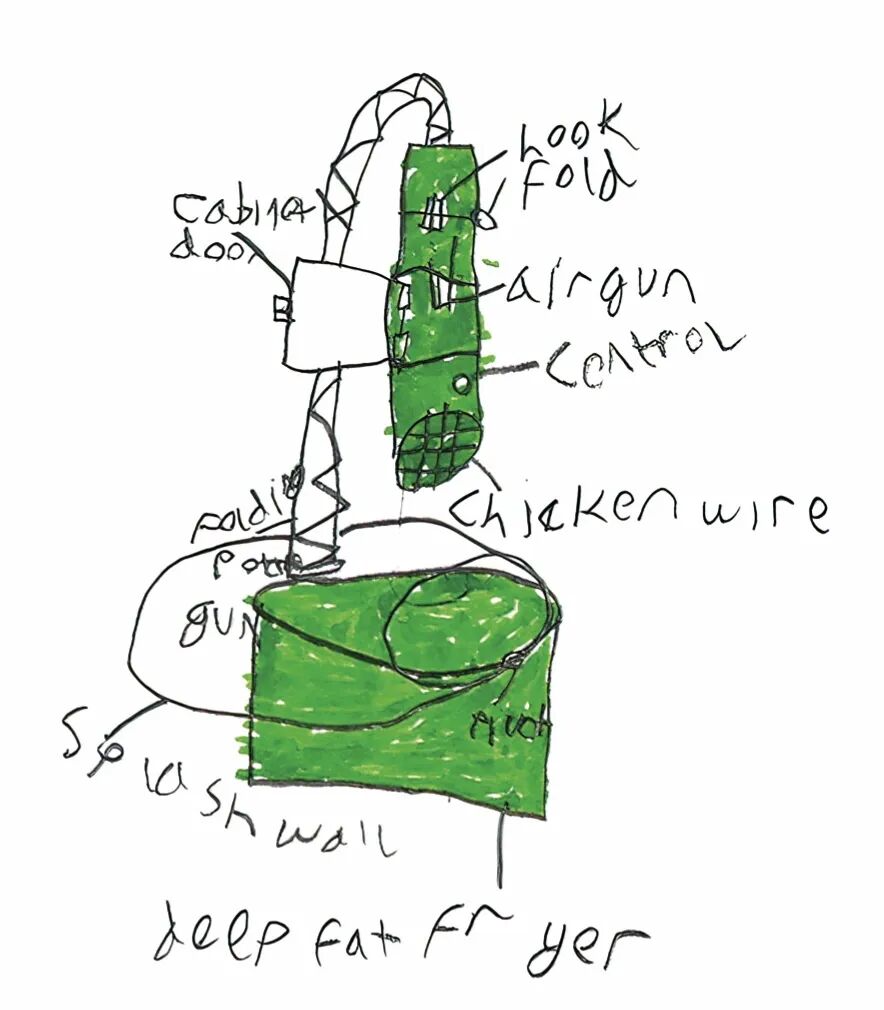 hook
Fold
Cabinet
door
airgun
Control
Chicken wire
Foldi
gun
Splash wall
deep fat Fr yer